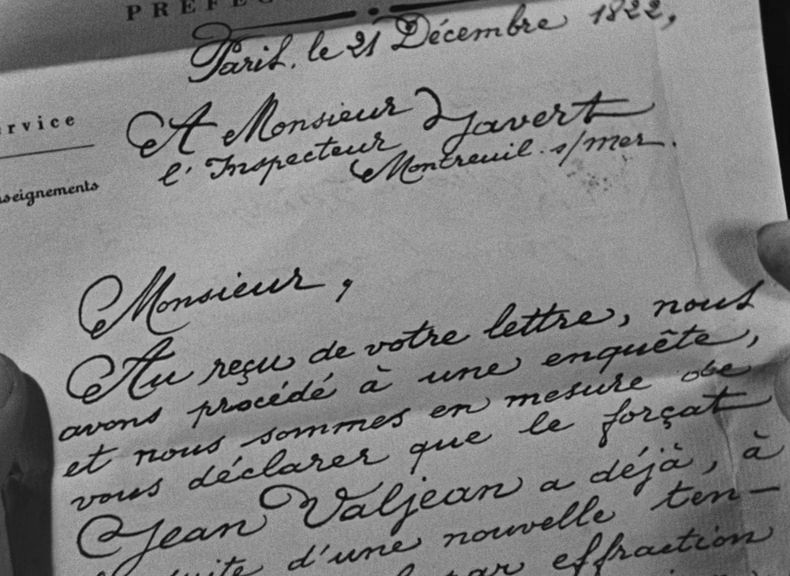 PRÉFEC
Paris, le 21 Décembre 1822,
ervice
seignements
A Monsieur Javert
l'Inspecteur
Montreuil s/mer.
Monsieur,
Au reçu de votre lettre, nous
avons procédé à une enquête,
et nous sommes en mesure de
vous déclarer que le forçat
Jean Valjean a déjà, à
d'une nouvelle ten-
par effraction